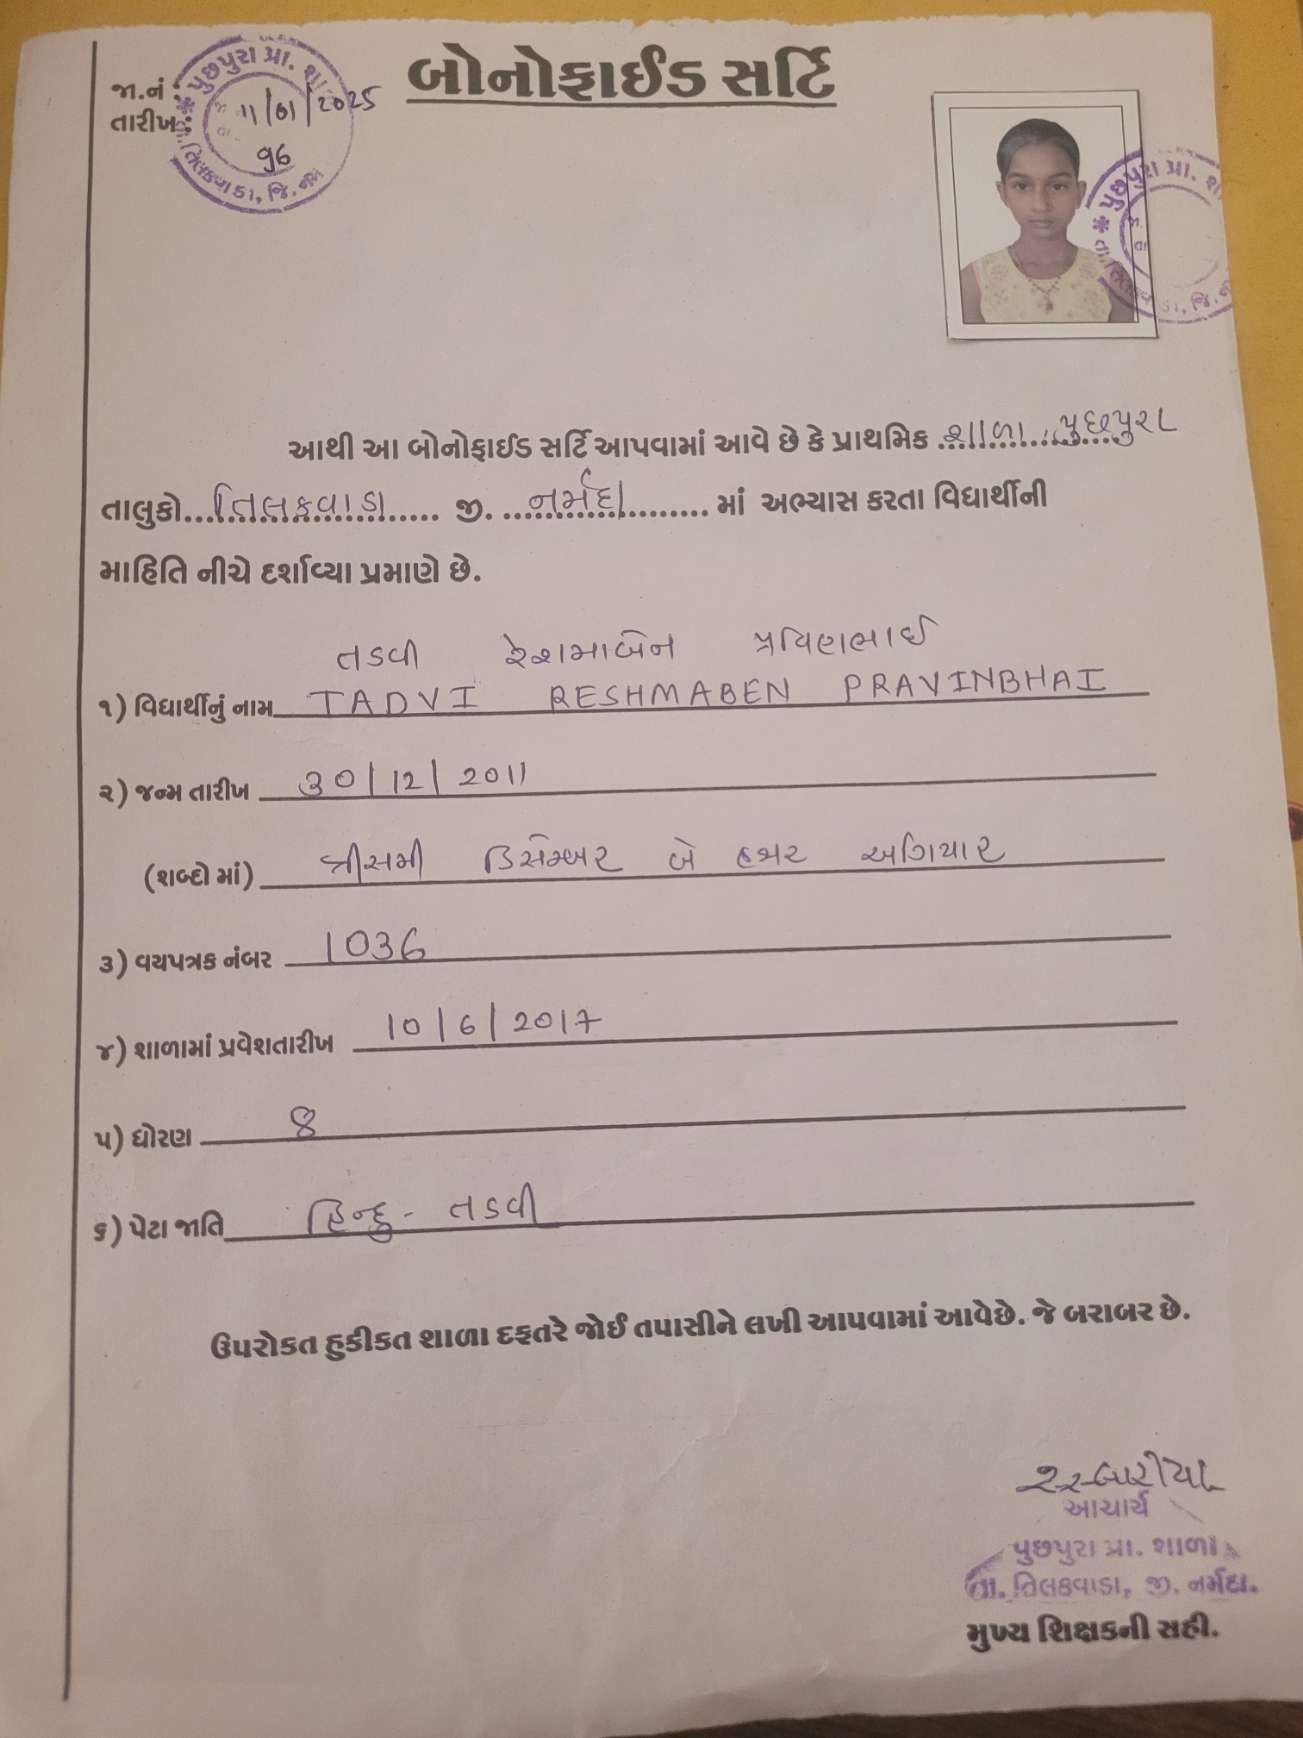 બોનોફાઈડ સર્ટિ
જા.નં :
તારીખ:
11/01/2025
96
પુછપુરા પ્રા. શા
તા. તિલકવાડા, જિ. નર્મ
પુછપુરા પ્રા. શા
તા. તિલકવાડા, જિ. ન
આથી આ બોનોફાઈડ સર્ટિ આપવામાં આવે છે કે પ્રાથમિક શાળા પુછપુરા
તાલુકો...તિલકવાડા..... જી. ...નર્મદા......... માં અભ્યાસ કરતા વિદ્યાર્થીની
માહિતિ નીચે દર્શાવ્યા પ્રમાણે છે.
તડવી રેશમાબેન પ્રવિણભાઈ
૧) વિદ્યાર્થીનું નામ TADVI RESHMABEN PRAVINBHAI
૨) જન્મ તારીખ 30/12/2011
(શબ્દો માં) ત્રીસમી ડિસેમ્બર બે હજાર અગિયાર
૩) વયપત્રક નંબર 1036
૪) શાળામાં પ્રવેશતારીખ 10/6/2017
૫) ધોરણ 8
૬) પેટા જાતિ હિન્દુ - તડવી
ઉપરોકત હકીકત શાળા દફતરે જોઈ તપાસીને લખી આપવામાં આવેછે. જે બરાબર છે.
આચાર્ય
પુછપુરા પ્રા. શાળા
તા. તિલકવાડા, જી. નર્મદા.
મુખ્ય શિક્ષકની સહી.